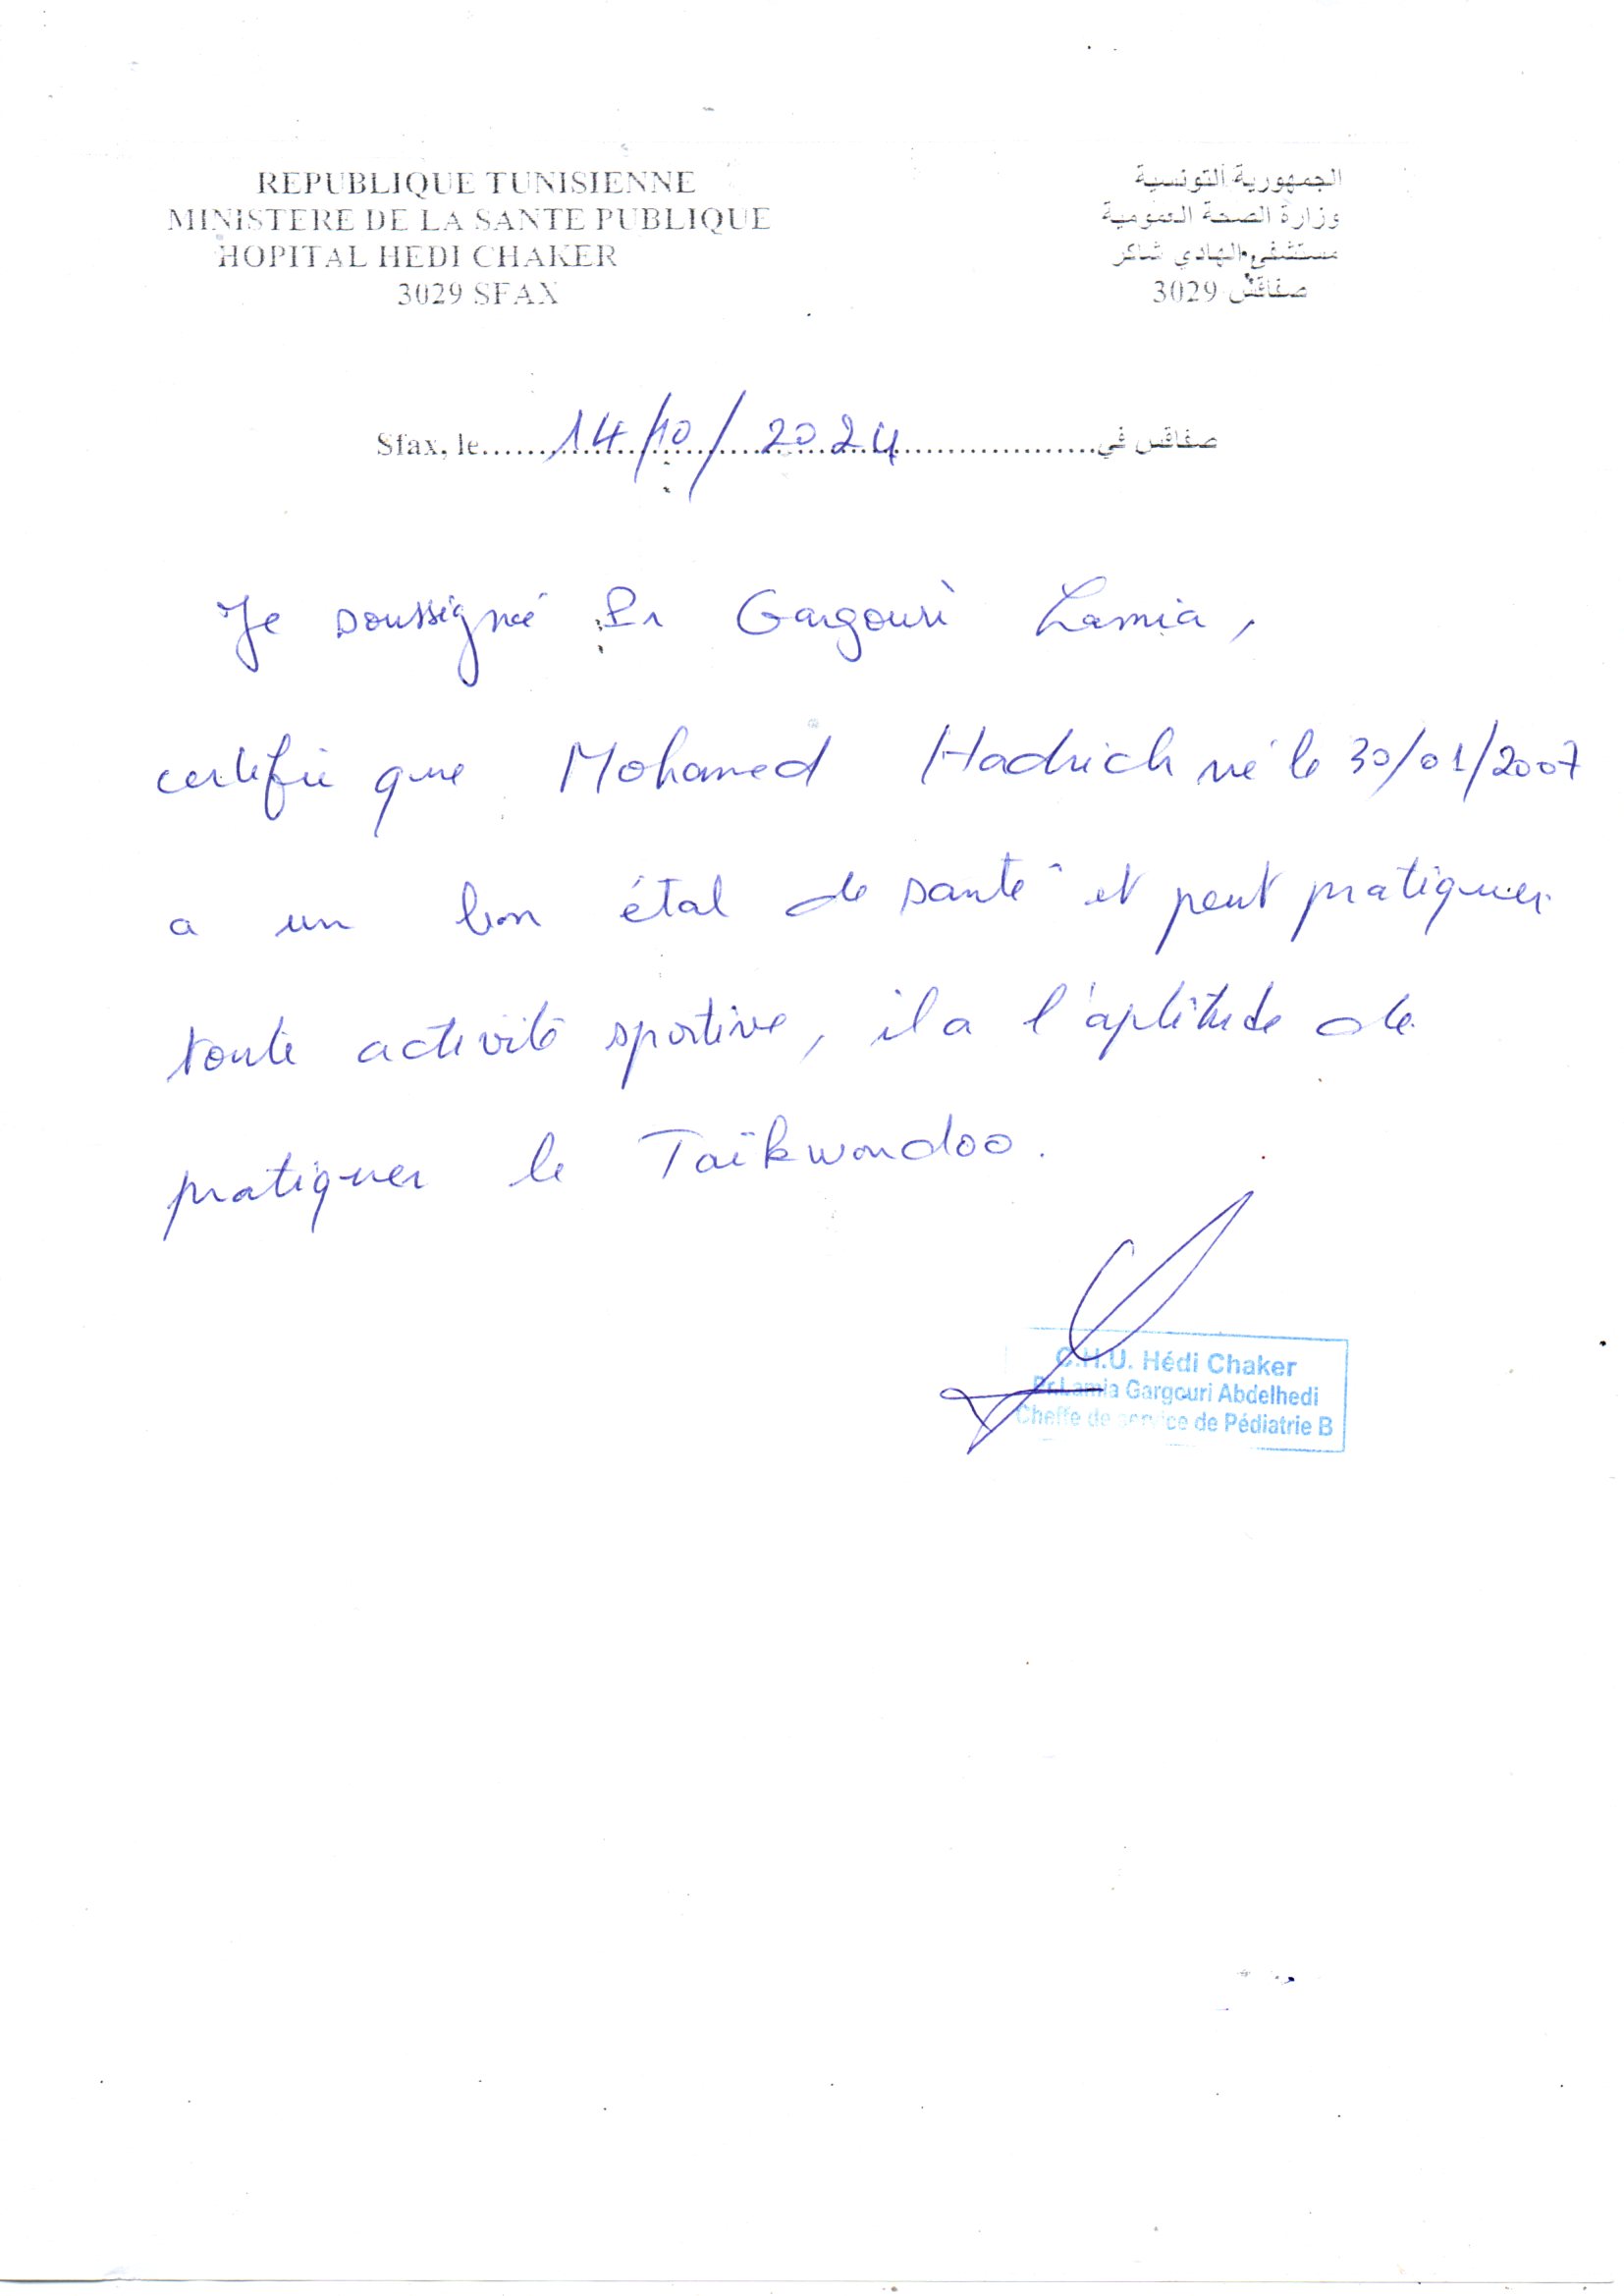 REPUBLIQUE TUNISIENNE
MINISTERE DE LA SANTE PUBLIQUE
HOPITAL HEDI CHAKER
3029 SFAX
الجمهورية التونسية
وزارة الصحة العمومية
مستشفى الهادي شاكر
3029 صفاقس
Sfax, le 14/10/2024 صفاقس في
Je soussigné Pr Gargouri Lamia,
certifie que Mohamed Hadrich né le 30/01/2007
a un bon état de santé et peut pratiquer
toute activité sportive, il a l'aptitude de
pratiquer le Taïkwondoo.
C.H.U. Hédi Chaker
Pr.Lamia Gargouri Abdelhedi
Cheffe de service de Pédiatrie B